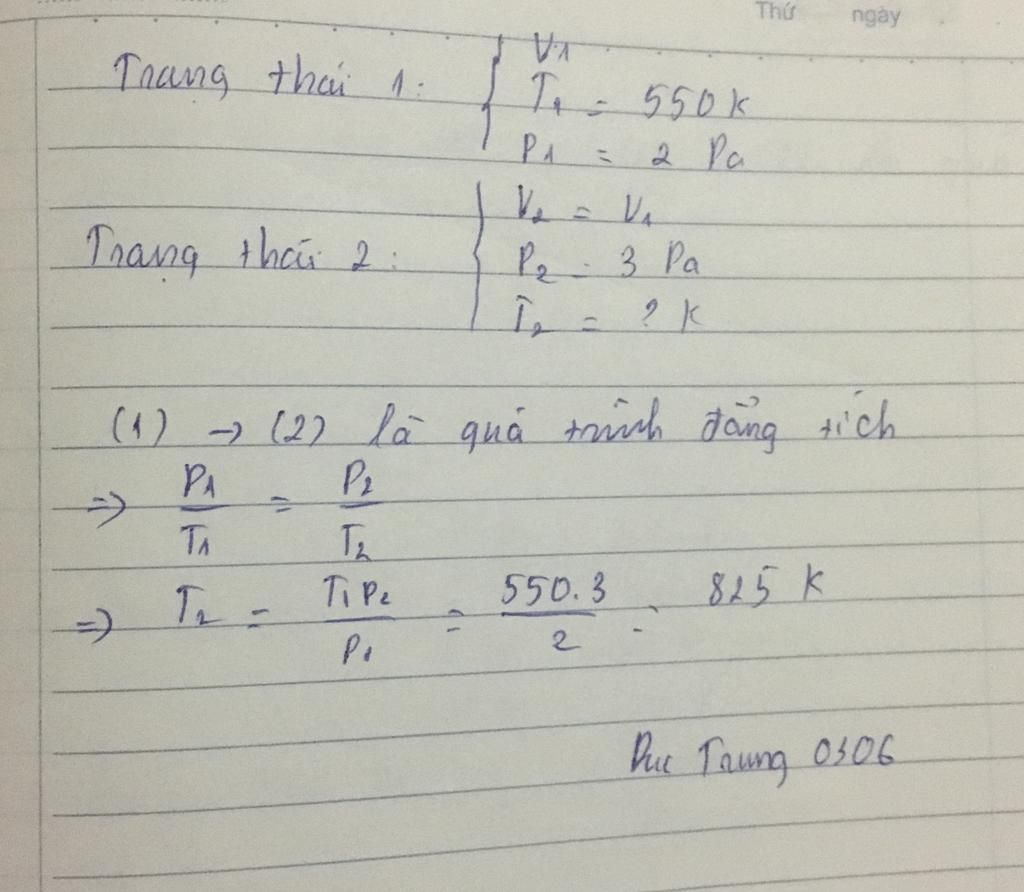 Thứ ngày
Trạng thái 1: { V1
T1 = 550 K
P1 = 2 Pa
Trạng thái 2: { V2 = V1
P2 = 3 Pa
T2 = ? K
(1) → (2) là quá trình đẳng tích
⇒ P1/T1 = P2/T2
⇒ T2 = T1P2/P1 = 550.3/2 = 825 K
Duc Trung 0306